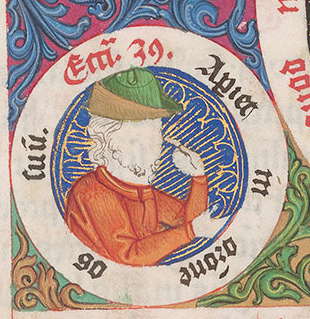 Eccī. 39.
Apiet
in
orōne
os
suū.